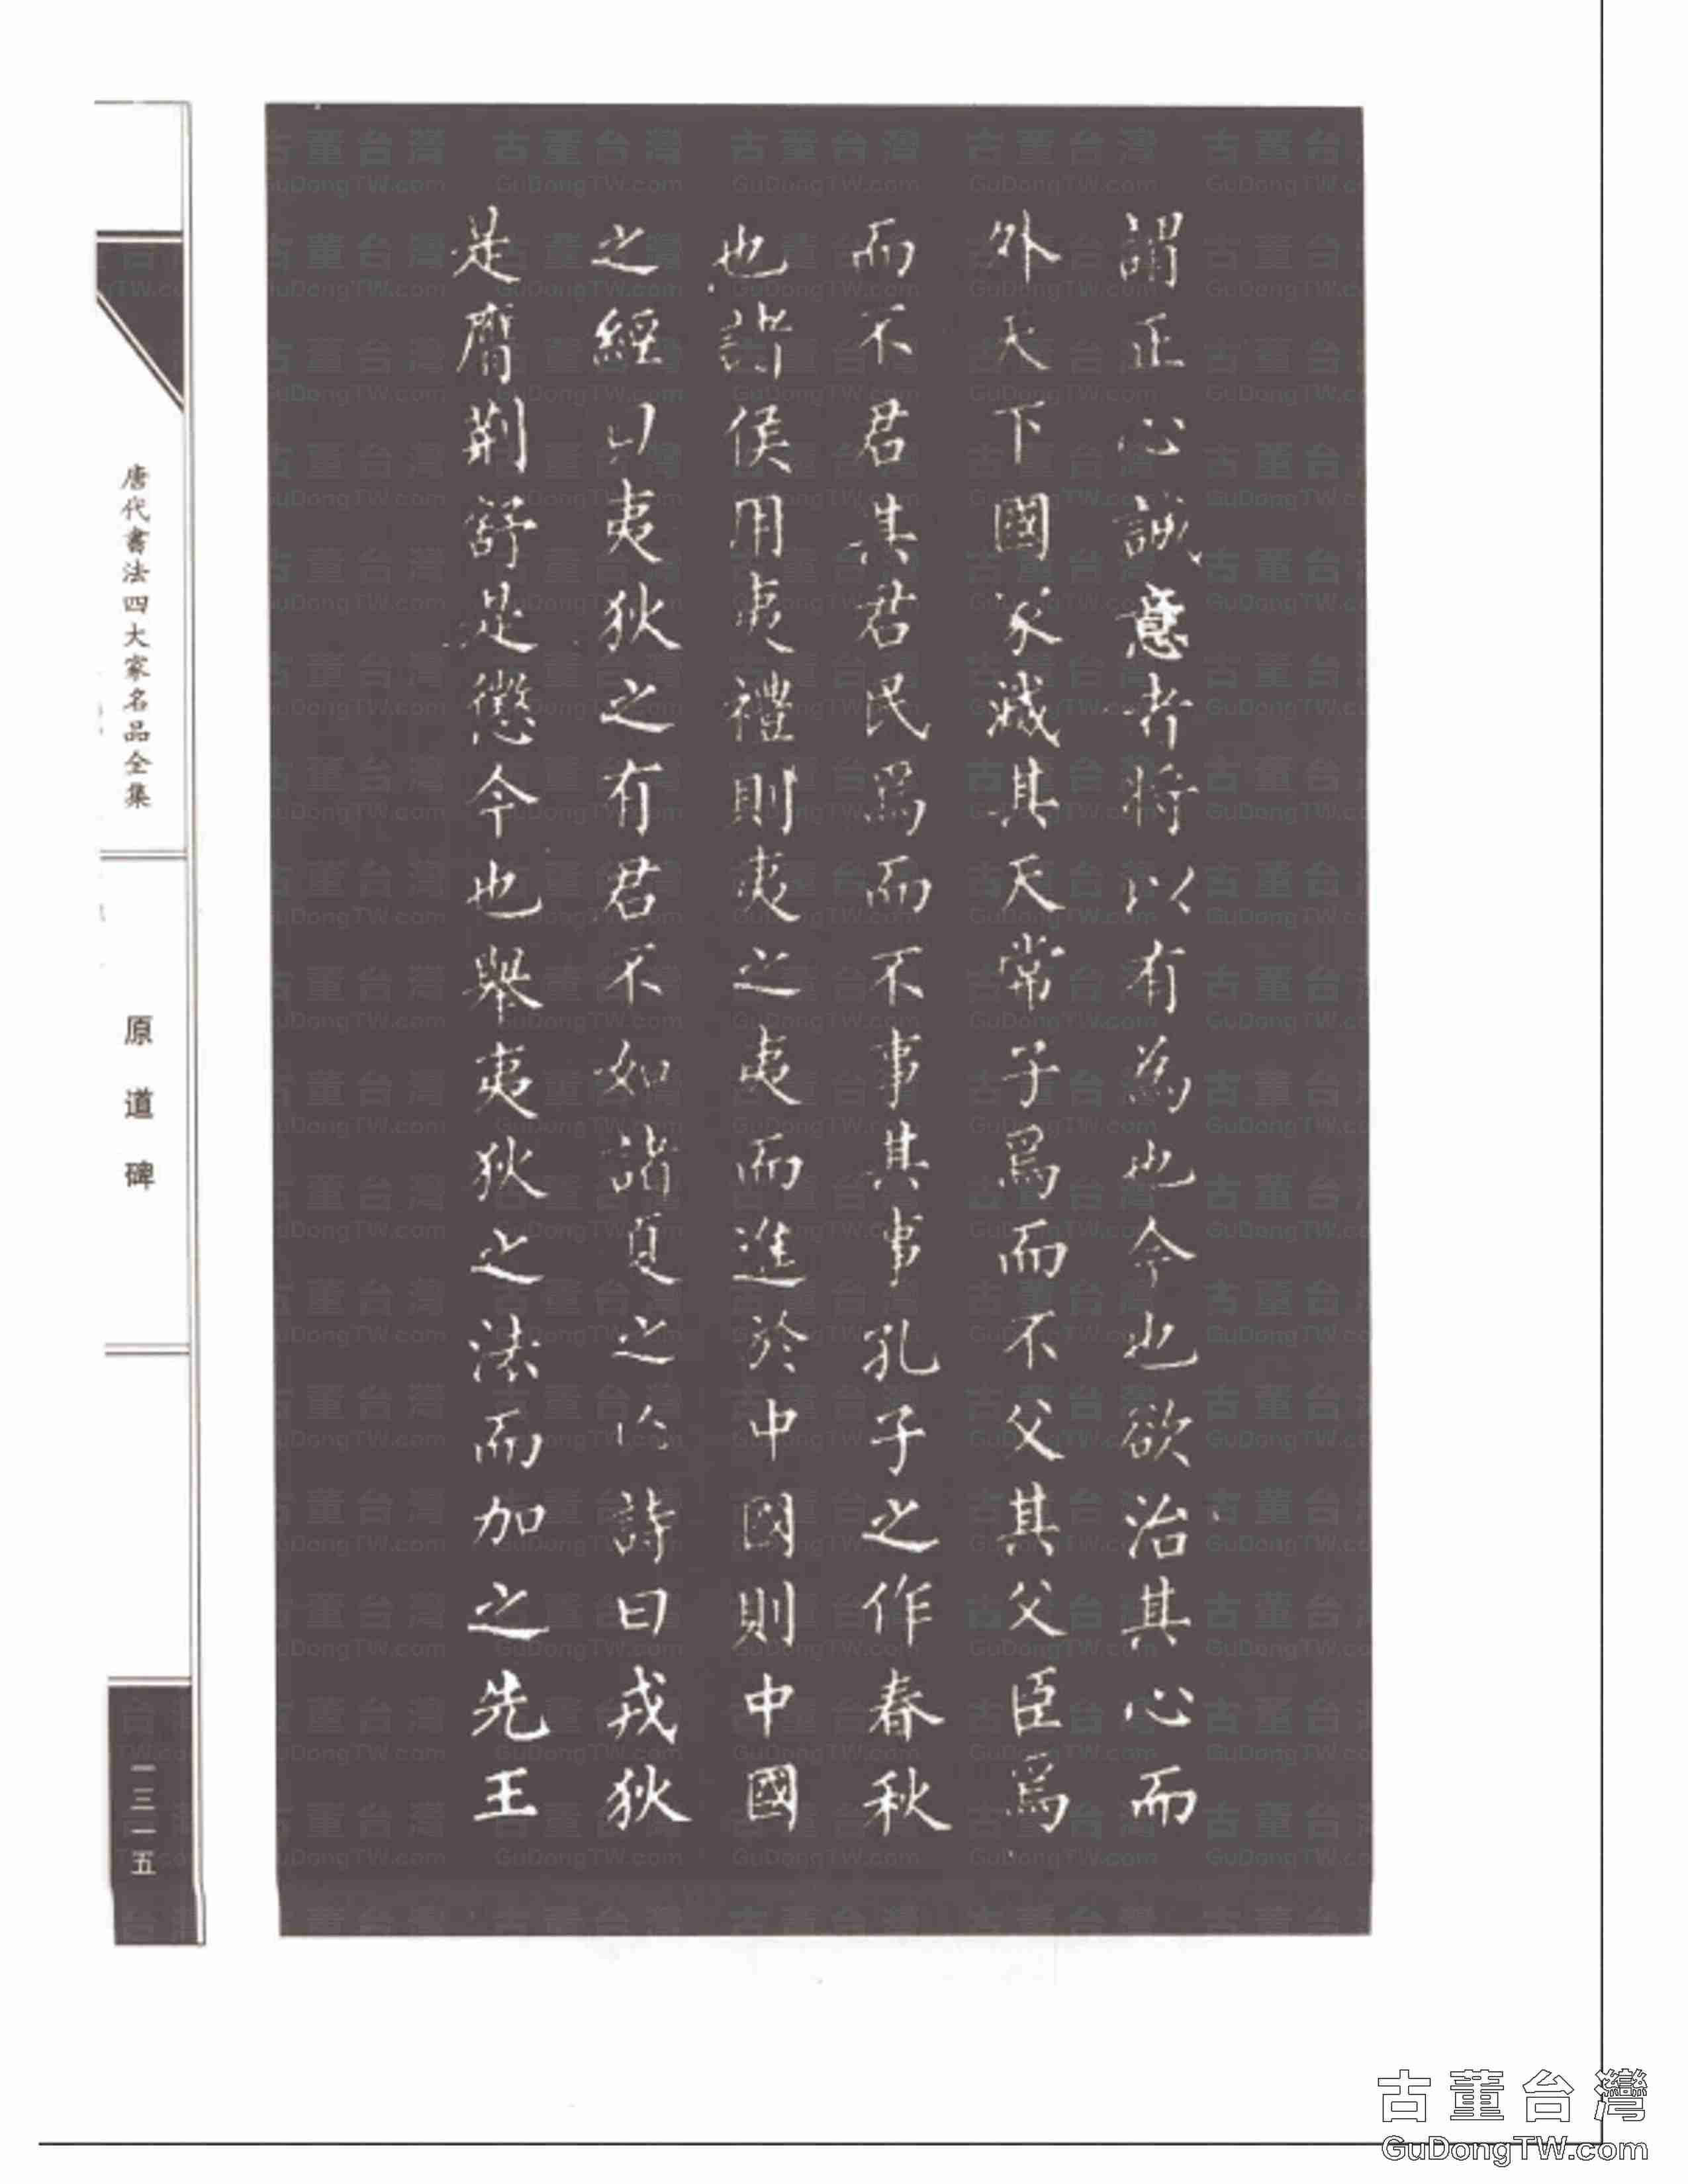 謂正心誠意者將以有為也今也欲治其心而
外天下國家滅其天常子焉而不父其父臣焉
而不君其君民焉而不事其事孔子之作春秋
也諸侯用夷禮則夷之夷而進於中國則中國
之經曰夷狄之有君不如諸夏之詩曰戎狄
是膺荊舒是懲今也舉夷狄之法而加之先王
唐代書法四大家名品全集
原道碑
一三一五
古董台灣
GuDongTW.com